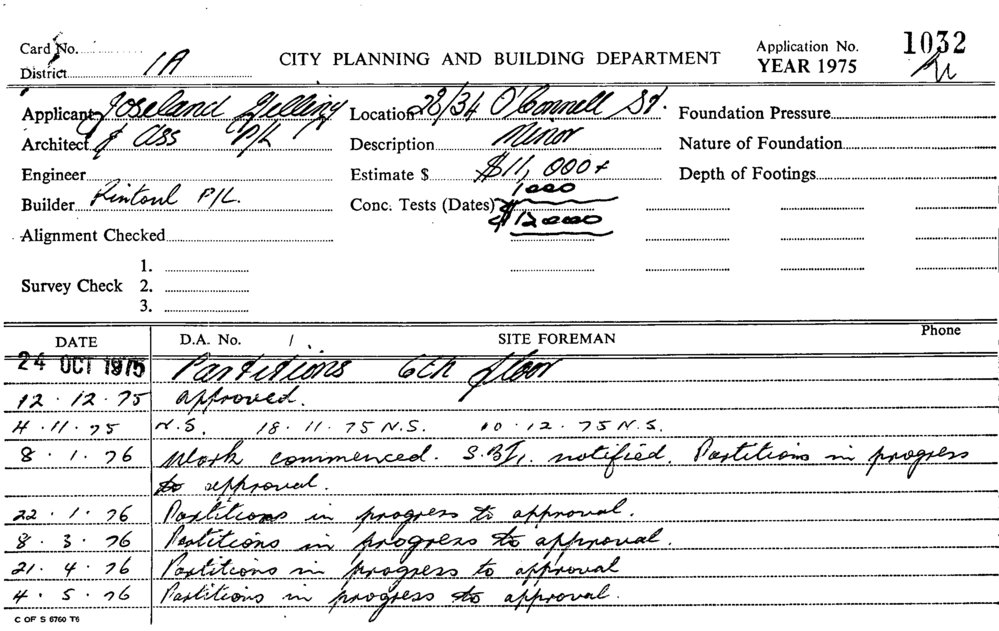 Card No.
CITY PLANNING AND BUILDING DEPARTMENT
Application No. 1032
District 1A
YEAR 1975
Applicant Joseland Gilling
Location 28/34 O'Connell St.
Foundation Pressure
Architect & Ass P/L
Description Minor
Nature of Foundation
Engineer
Estimate $ $11,000+
Depth of Footings
1000
Builder Rintoul P/L.
Conc. Tests (Dates)
$12000
Alignment Checked
1.
Survey Check 2.
3.
DATE D.A. No. SITE FOREMAN Phone
24 OCT 1975 Partitions 6th floor
12.12.75 approved.
4.11.75 N.S. 18.11.75 N.S. 10.12.75 N.S.
8.1.76 Work commenced. notified. Partitions in progress
to approval.
22.1.76 Partitions in progress to approval.
8.3.76 Partitions in progress to approval.
21.4.76 Partitions in progress to approval
4.5.76 Partitions in progress to approval.
C OF S 6760 T6